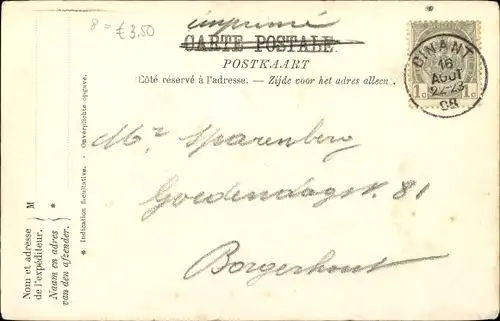 8 = £ 3.50
imprimé
CARTE POSTALE
POSTKAART
(Côté réservé à l'adresse. — Zijde voor het adres alleen.)
DINANT
16
AOUT
22-23
1c 1c
Mr Sparenberg
Goedendagstr. 81
Borgerhout
Nom et adresse
de l'expéditeur.
M
Naam en adres
van den afzender.
*
* Indication facultative. - Onverplichte opgave.